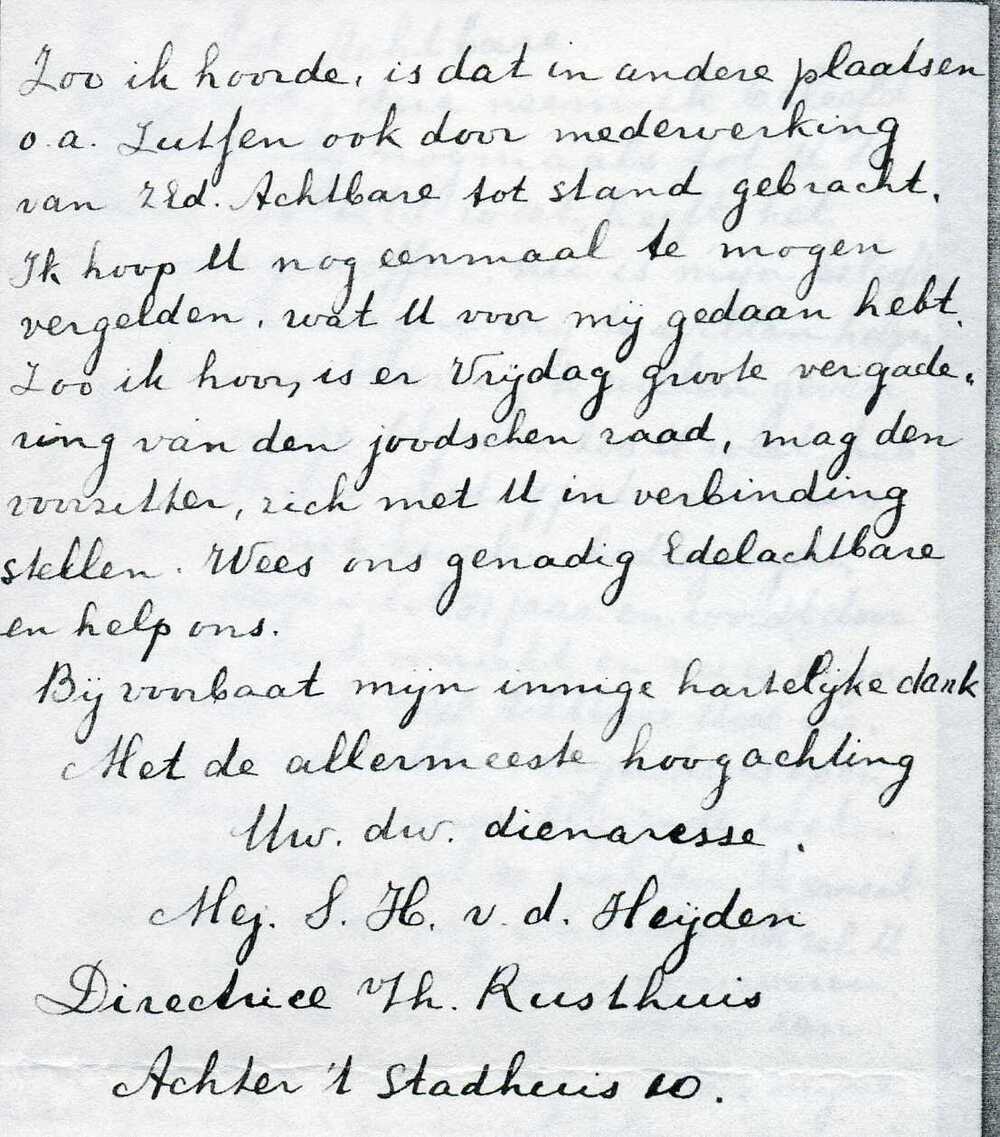 Zoo ik hoorde, is dat in andere plaatsen
o.a. Zutfen ook door mederwerking
van ZEd. Achtbare tot stand gebracht.
Ik hoop U nog eenmaal te mogen
vergelden, wat U voor mij gedaan hebt.
Zoo ik hoor, is er Vrijdag groote vergade-
ring van den joodschen raad, mag den
voorzitter, zich met U in verbinding
stellen. Wees ons genadig Edelachtbare
en help ons.
Bij voorbaat mijn innige hartelijke dank
Met de allermeeste hoogachting
Uw. dw. dienaresse.
Mej. S. H. v. d. Heijden
Directrice Th. Rusthuis
Achter 't Stadhuis 10.